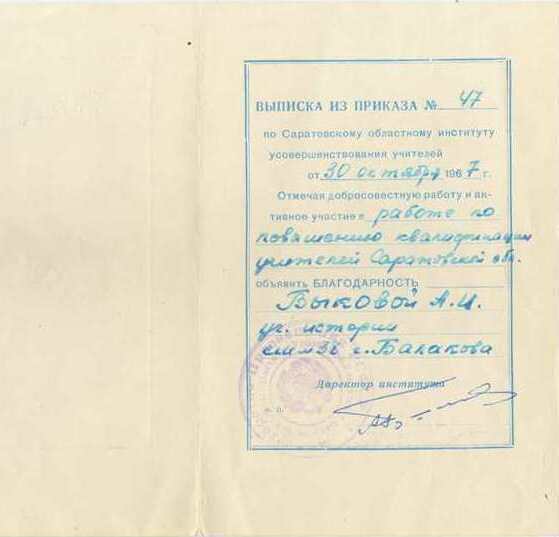 ВЫПИСКА ИЗ ПРИКАЗА № 47
по Саратовскому областному институту
усовершенствования учителей
от 30 октября 1967 г.
Отмечая добросовестную работу и ак-
тивное участие в работе по
повышению квалификации
учителей Саратовской обл.
объявить БЛАГОДАРНОСТЬ
Быковой А. И.
уч. истории
г. Балакова
Директор института
м. п.